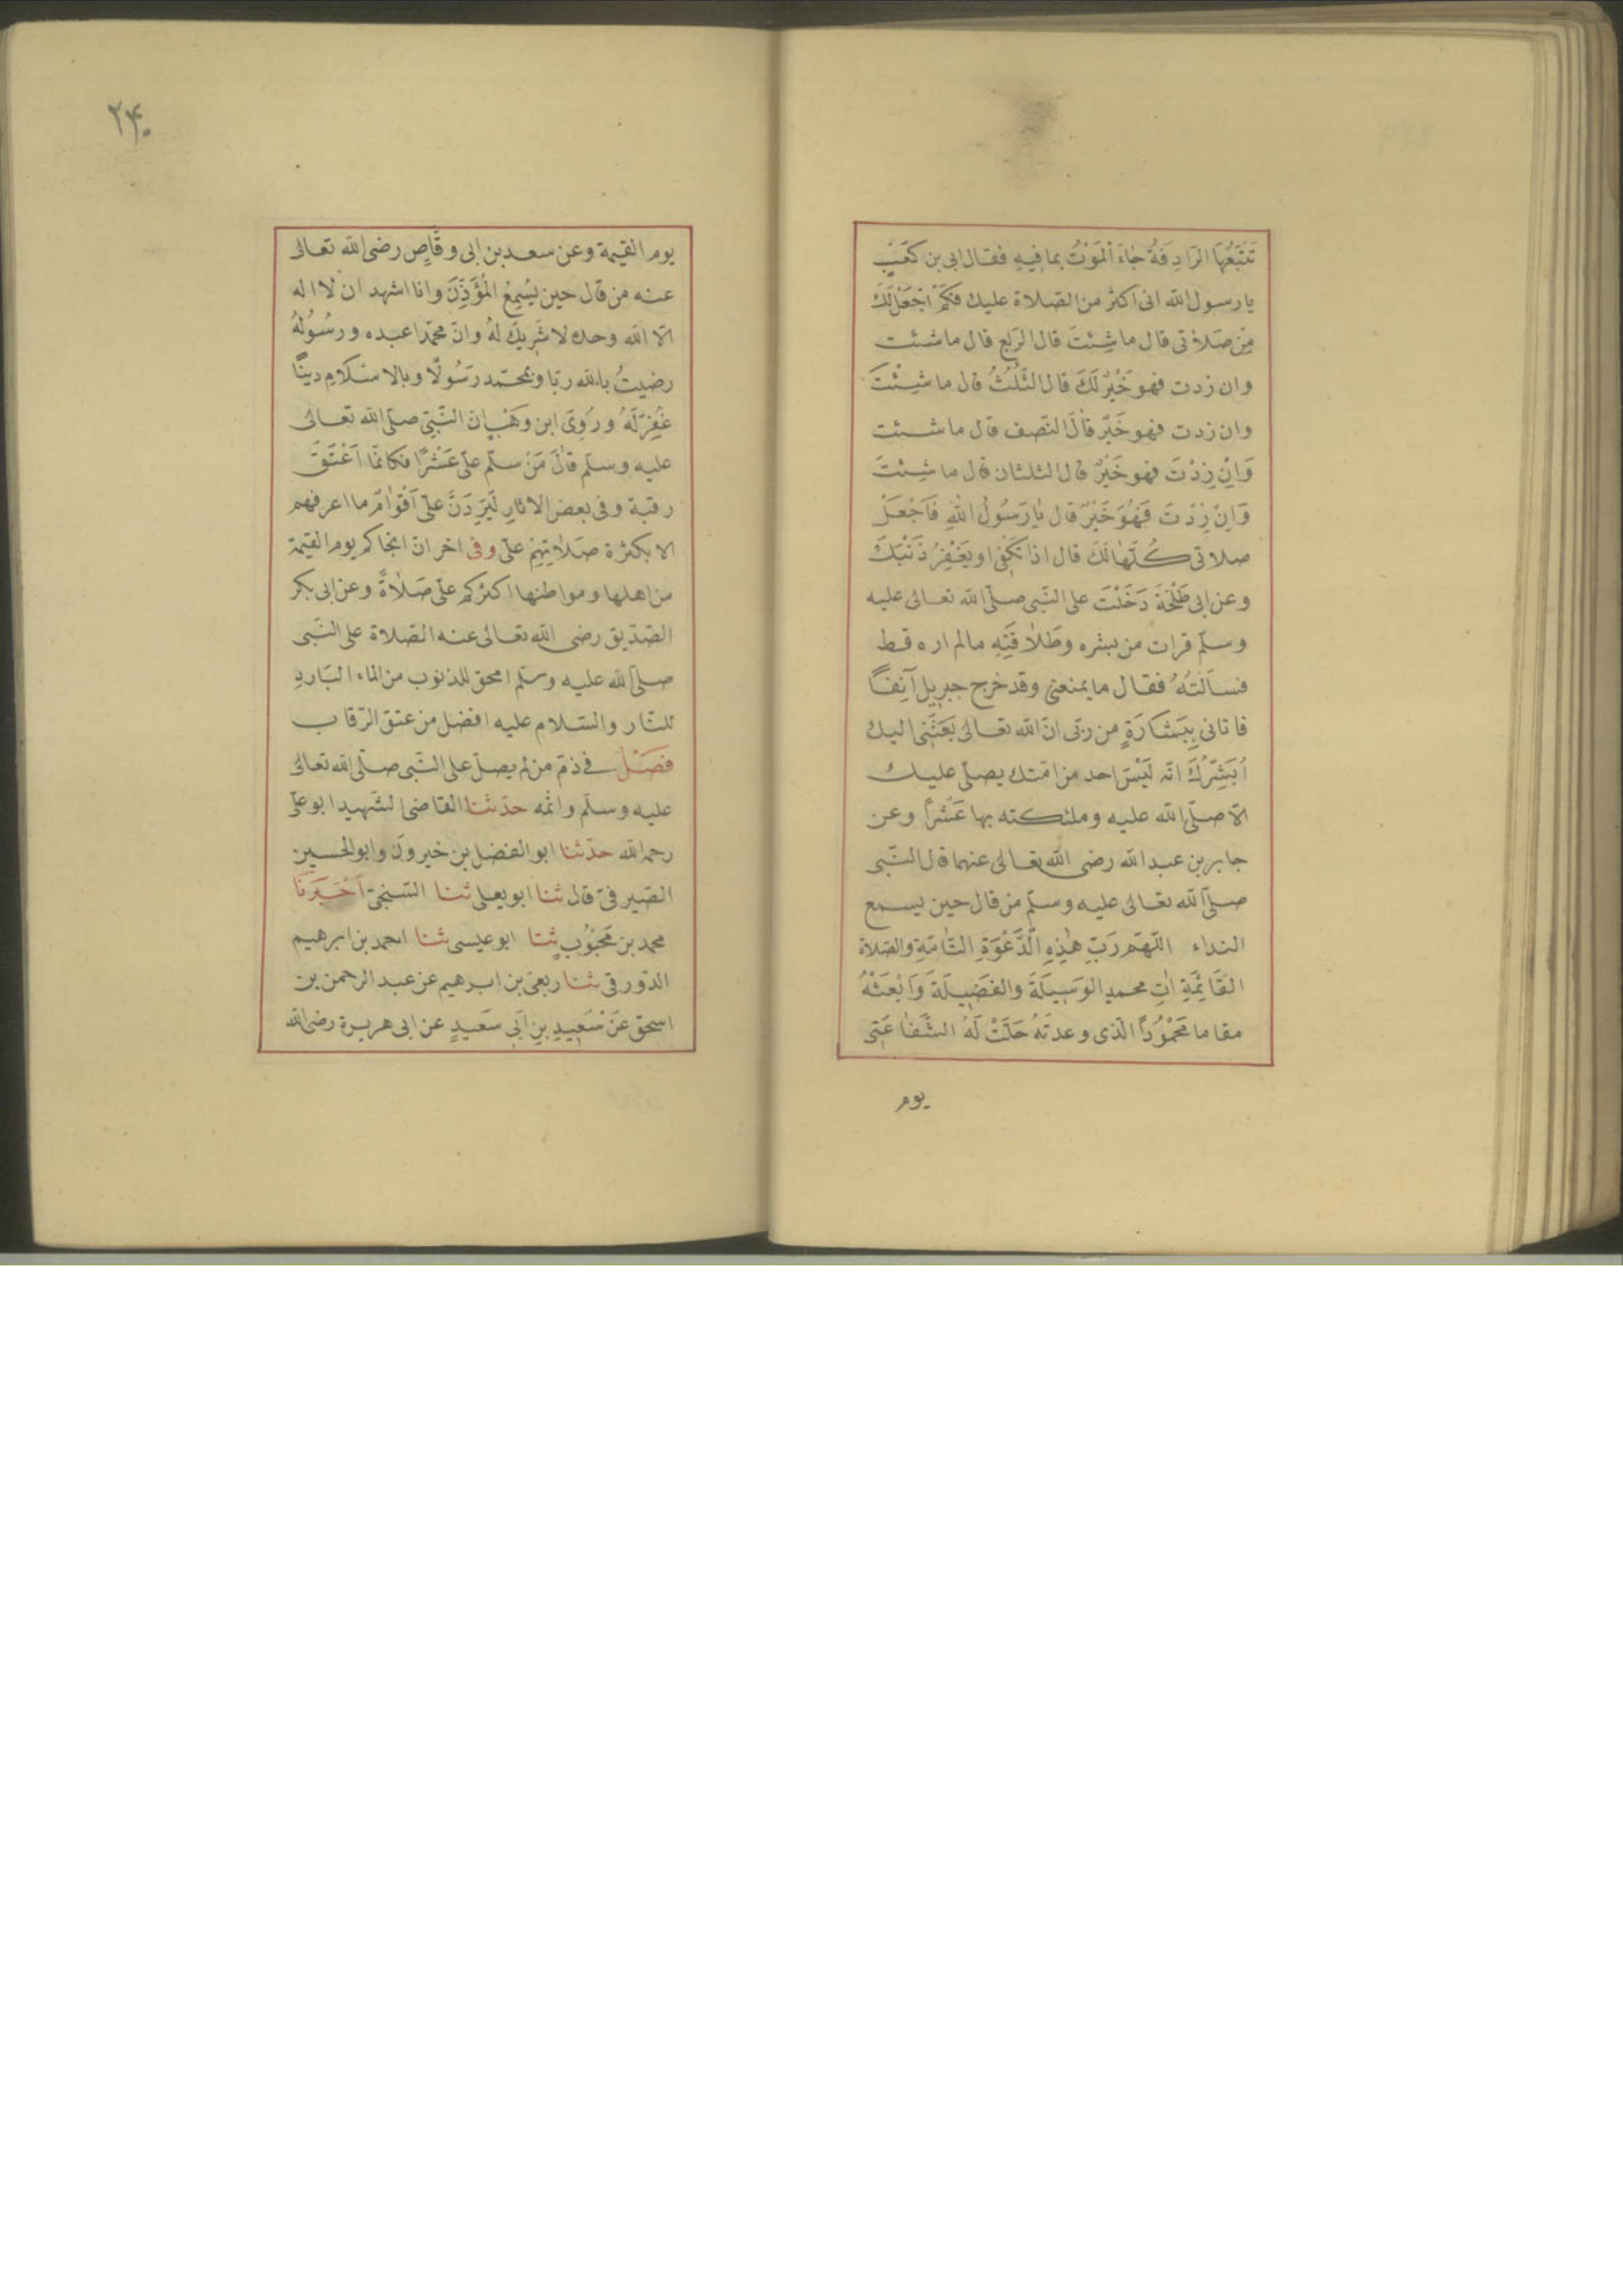 تَتْبَعُهَا الرَّادِفَةُ جَاءَ الْمَوْتُ بما فِيهِ فقال ابى بن كَعْبٍ
يا رسول الله انى اكثر من الصّلاة عليك فكَمْ اَجْعَلُ لَكَ
مِنْ صَلَاتى قال ما شِئتَ قال الرّبع قال ما شئت
وان زدت فهو خَيْرٌ لَكَ قال الثُّلُثُ قال ما شِئْتَ
وان زدت فهو خَيْرٌ قَالَ النّصف قال ما شئت
وَاِنْ زِدْتَ فهو خَيْرٌ قال الثلثان قال ما شِئتَ
وَاِنْ زِدْتَ فَهُوَ خَيْرٌ قال يَا رَسُولَ اللهِ فَاَجْعَلُ
صلاتى كُلَّهَا لَكَ قال اذا تكْفى ويَغْفِرُ ذَنْبَكَ
وعن ابى طَلْحَةَ دَخَلْتَ على النّبى صلّى الله تعالى عليه
وسلّم فرات من بشره وطَلَاقَتِهِ مالم اره قط
فسَاَلْتُهُ فقال ما يمنعنى وقد خرج جبريل آنِفًا
فاتانى بِبَشَارَةٍ من ربّى انّ الله تعالى بَعَثَنى اليك
اُبَشِّرُكَ انّه لَيْسَ احد من امّتك يصلّى عليك
الّا صلّى الله عليه وملئكته بها عَشْرًا وعن
جابر بن عبد الله رضى الله تعالى عنهما قال النّبى
صلّى الله تعالى عليه وسلّم من قال حين يسمع
النداء اللّهمّ رَبّ هَذِهِ الدَّعْوَةِ التَّامَّةِ والصّلاة
القَائِمَةِ اتِ محمد الوَسِيلَةَ والفَضِيلَةَ وَابْعَثْهُ
مقاما مَحْمُودًا الّذى وعدتَهُ حَلَّتْ لَهُ الشَّفَاعَتى
يوم
٢٤٠
يوم القيمة وعن سعد بن ابى وقّاصٍ رضى الله تعالى
عنه من قال حين يَسْمِعُ المُؤَذِّنَ وانا اشهد ان لا اله
الّا الله وحده لا شَرِيكَ لهُ وانّ محمّدا عبده ورسُولُهُ
رضيتُ بالله ربّا وبمحمّد رَسُولًا وبالاسْلَامِ دينًا
غُفِرَ لَهُ ورَوى ابن وَهْبٍ انّ النّبىّ صلّى الله تعالى
عليه وسلّم قال مَنْ سلّم علىّ عَشْرًا فكانّما اَعْتَقَ
رقبة وفى بعض الاثار لَيَرِدَنَّ علىّ اَقْوَامٌ ما اعرفهم
الا بكثرة صَلَاتِهِمْ علىّ وفى اخر ان انجاكم يوم القيمة
من اهلها ومواطنها اكثركم علىّ صَلَاةً وعن ابى بكر
الصّدّيق رضى الله تعالى عنه الصّلاة على النّبى
صلّى الله عليه وسلّم امحق للذنوب من الماء البَارد
للنّار والسّلام عليه افضل من عتق الرّقاب
فَصْلٌ فى ذمّ من لم يصلّ على النّبى صلّى الله تعالى
عليه وسلّم واثمه حدّثنا القاضى الشّهيد ابو علىّ
رحمه الله حدّثنا ابو الفضل بن خيرون وابو الحسين
الصّيرفىّ قال ثنا ابو يعلى ثنا السّنجىّ اَخْبَرَنَا
محمد بن مَحْبُوبٍ ثنا ابو عيسى ثنا احمد بن ابرهيم
الدّورقى ثنا ربعى بن ابرهيم عن عبد الرحمن بن
اسحق عَنْ سَعِيدِ بنِ اَبى سَعِيدٍ عن ابى هريرة رضى الله